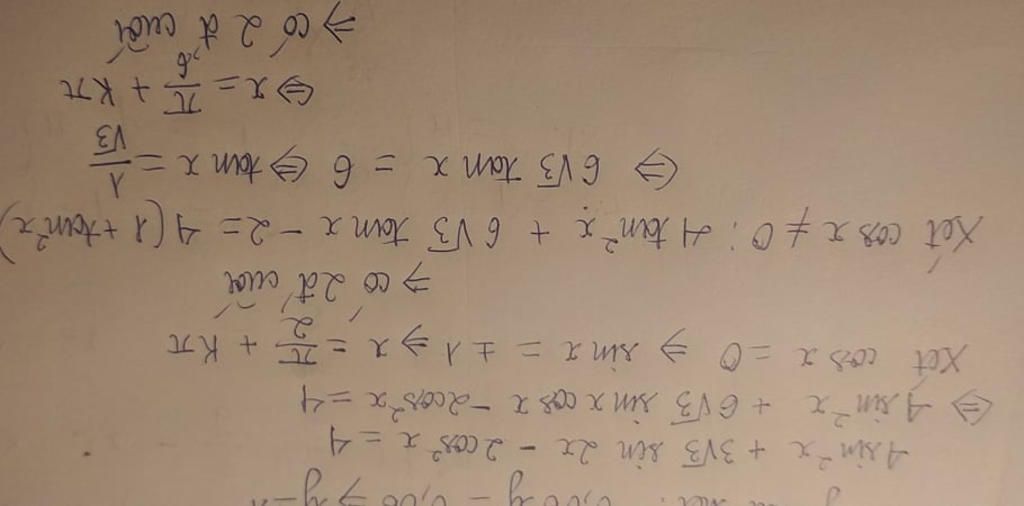 4sin²x + 3√3 sin 2x - 2cos²x = 4
⇔ 4sin²x + 6√3 sin x cos x - 2cos²x = 4
Xét cos x = 0 ⇒ sin x = ±1 ⇒ x = π/2 + kπ
⇒ có 2 đ cuối
Xét cos x ≠ 0: 4tan²x + 6√3 tan x - 2 = 4(1 + tan²x)
⇔ 6√3 tan x = 6 ⇔ tan x = 1/√3
⇔ x = π/6 + kπ
⇒ có 2 đ cuối